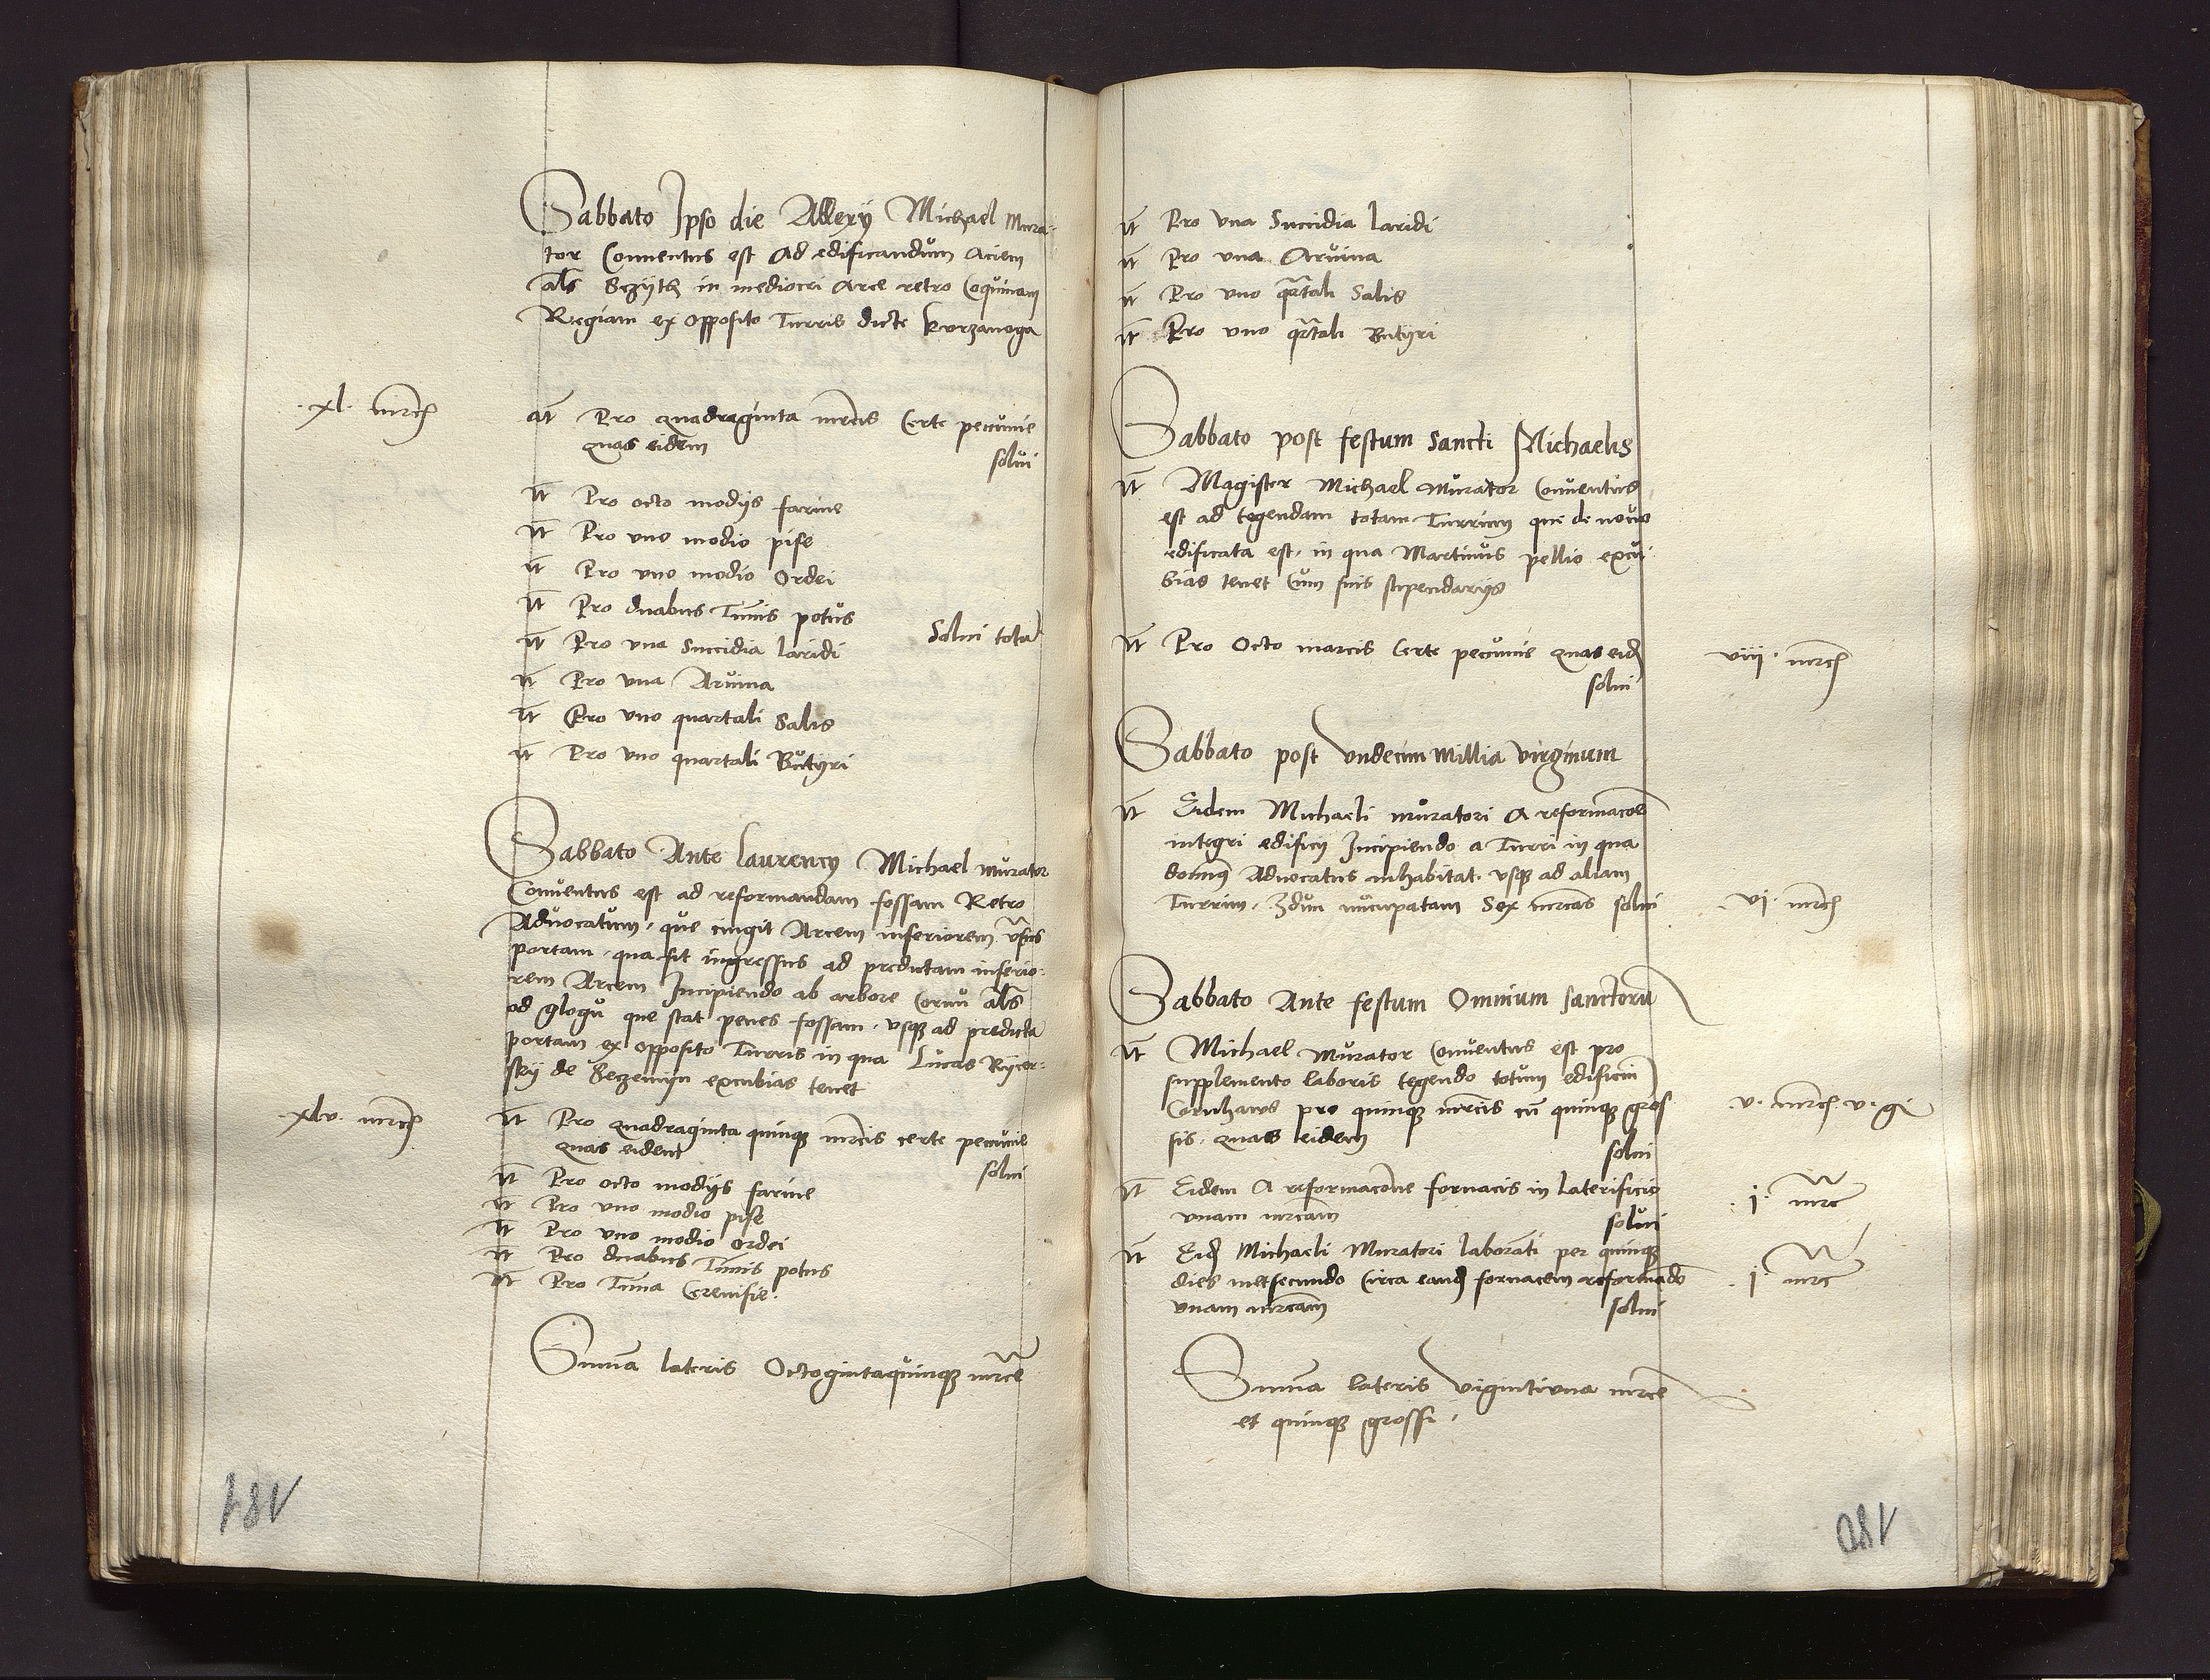 Sabbato Ipso die Allexÿ Michael Mura-
tor Conuentus est Ad edificandum Aciem
als Sczÿth in mediocri Arce retro Coquinam
Regiam ex opposito Turris dicte kurzanoga
.xl. mrcę
at Pro quadraginta mrcis Certe pecunie
quas eidem
solui
It Pro octo modÿs farine
It Pro vno modio pise
It Pro vno modio Ordei
It Pro duabus Tunis potus
Solui tota
It Pro vna Succidia laridi
It Pro vna Aruina
It Pro vno quartali Salis
It Pro vno quartali Butÿri
Sabbato Ante laurencÿ Michael murator
Conuentus est ad reformandam fossam Retro
Aduocatum, que cingit Arcem inferiorem vsus
portam, qua fit ingressus ad predictam inferio-
rem Arcem Incipiendo ab arbore Cornu als
od glogu que stat penes fossam, vsqz ad predicta
portam ex opposito Turris in qua Lucas Rÿcer-
skÿ de excubias tenet
xlv. mrcę
It Pro quadraginta quinqz mrcis certe pecunie
quas eidem
solui
It Pro octo modÿs farine
It Pro vno modio pise
It Pro vno modio ordei
It Pro duabus Tunis potus
It Pro Tuna Cereuisie.
Suma lateris Octogintaquinqz mrce
181
It Pro vna Succidia laridi
It Pro vna Aruina
It Pro vno qrtali Salis
It Pro vno qrtali Butÿri
Sabbato post festum Sancti Michaelis
It Magister Michael murator Conuentus
est ad tegendam totam Turrim que de nouo
edificata est, in qua Martinus pellio excu-
bias tenet Cum suis stipendariÿs
It Pro Octo marcis Certe pecunie quas eid
solui
viii. mrcę
Sabbato post vndecim Millia virginum
It Eidem Michaeli muratori A reformacoe
integri edificÿ Incipiendo a Turri in qua
domus Aduocatus inhabitat, vsqz ad aliam
Turrim, Zdun nucupatam Sex mrcas solui
.vi. mrcę
Sabbato Ante festum Omnium sanctoru
It Michael murator Conuentus est pro
supplemento laboris tegendo totum edificiu
Cornhaws pro quinqz mrcis cu quinqz gros-
sis, quas eidem
solui
.v. mrcę .v. gi
It Eidem A reformacone fornacis in laterificio
vnam mrcam
solui
.i. mrc
It Eid Michaeli Muratori laboranti per quinqz
dies metsecundo Circa eand fornacem reformado
vnam mrcam
solui
.i. mrc
Suma lateris vigintivna mrce
et quinqz grossi.
180